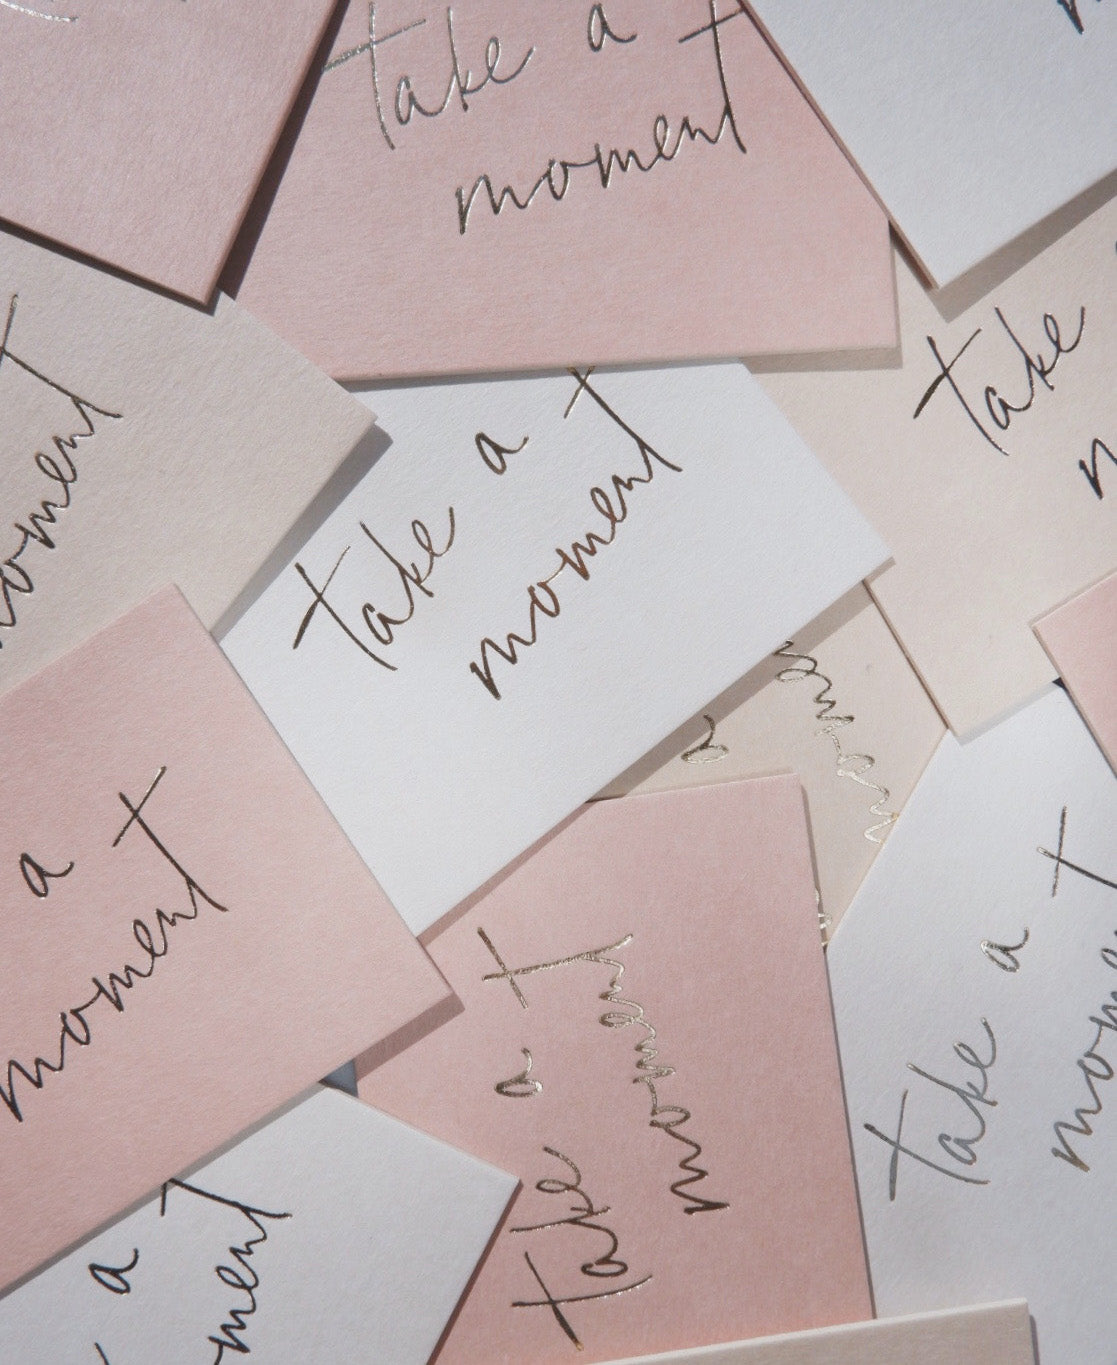 take a
moment
take
moment
take a
moment
a
moment
a
moment
take a
moment
take a
moment
a
ment